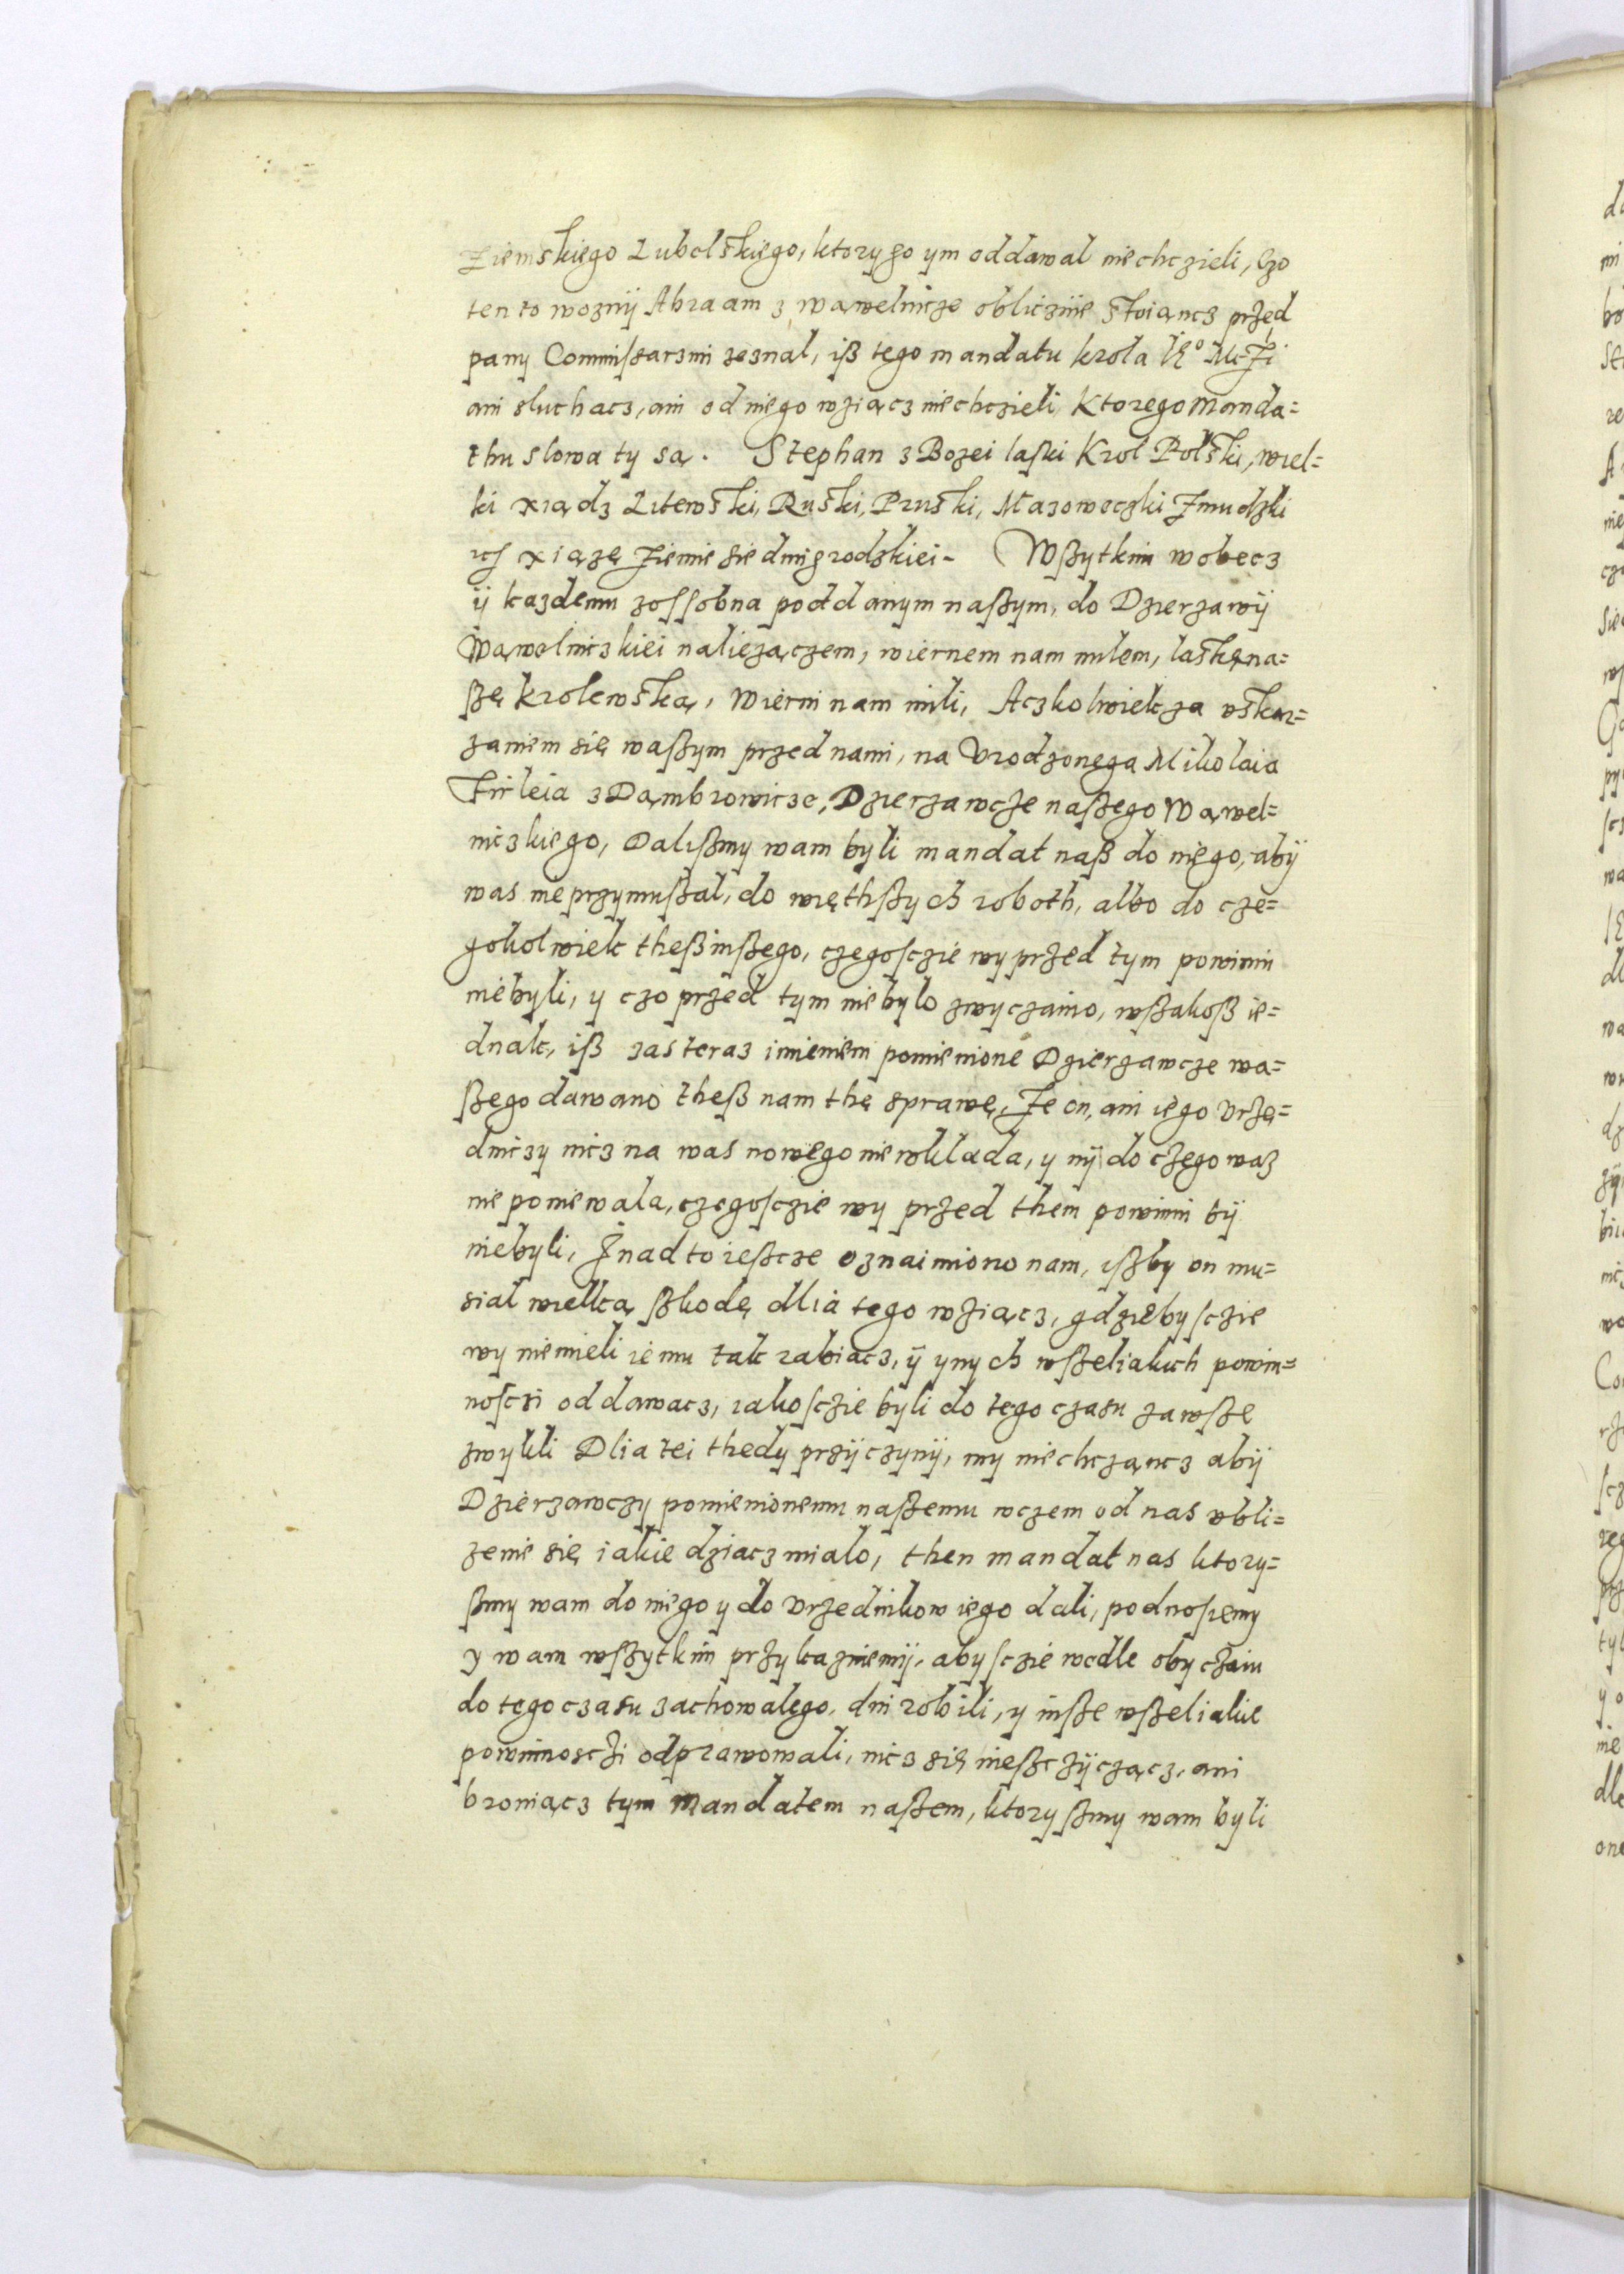 Ziemskiego Lubelskiego, ktory go ym oddawal niechczieli, Czo
ten to woznij Abraam z Wąwelnicze obliczne stoiąncz przed
pany Commissarzmi zeznal, iß tego mandatu krola Jego M-Czi
ani sluchacz, ani od niego wziącz niechczieli, Ktorego Manda=
thu slowa ty są. Stephan z Bozei laski Krol Polski, wiel=
ki xiądz Litewski, Ruski, Pruski, Mazoweczki Zmudzki
xiązę ziemie siedmigrodzkiei- Wßytkim wobecz
ij kazdemu zossobna poddanym naßym, do Dzierzawij
Wąwolniczkiei naliezączem, wiernem nam milem, laskę na=
ßę krolewską, Wierni nam mili, Aczkolwiek za uskar=
zaniem się waßym przed nami, na Urodzonega Mikolaia
Firleia z Dąmbrowicze, Dzierzawcze naßego Wąwel=
niczkiego, Dalißmy wam byli mandat naß do niego, abij
was nie przymußal, do więthßych roboth, albo do cze=
gokolwiek theß inßego, czegosczie wy przed tym powinni
niebyli, y czo przed tym niebylo zwyczaino, wßakoß ie=
dnak, iß zas teraz imieniem pomienione Dzierzawcze wa=
ßego dawano theß nam thę sprawę, Ze on, ani iego urzę=
dniczy nicz na was nowego niewklada, y nij do czego waz
nie poniewala, czegosczie wy przed them powinni bij
niebyli, I nad to ießcze oznaimiono nam, ißby on mu=
sial wielką ßkodę dlia tego wziącz, gdziebysczie
wy niemieli iemu tak rabiacz, ij ynych wßeliakich powin=
nosczi oddawacz, iakosczie byli do tego czasu zawßę
zwykli Dlia tei thedy przijczynij, my niechcząncz abij
Dzierzawczy pomienionemu naßemu wczem od nas ubli=
zenie się iakie dziacz mialo, then mandat nas ktory=
ßmy wam do niego y do urzednikow iego dali, podnosiemy
y wam wßytkim przykazuiemij, abysczie wedle obyczaiu
do tego czasu zachowalego, dni robili, y inße wßeliakie
powinnosczi odprawowali, nicz się nießczijcząc z, ani
broniącz tym Mandatem naßem, ktoryßmy wam byli